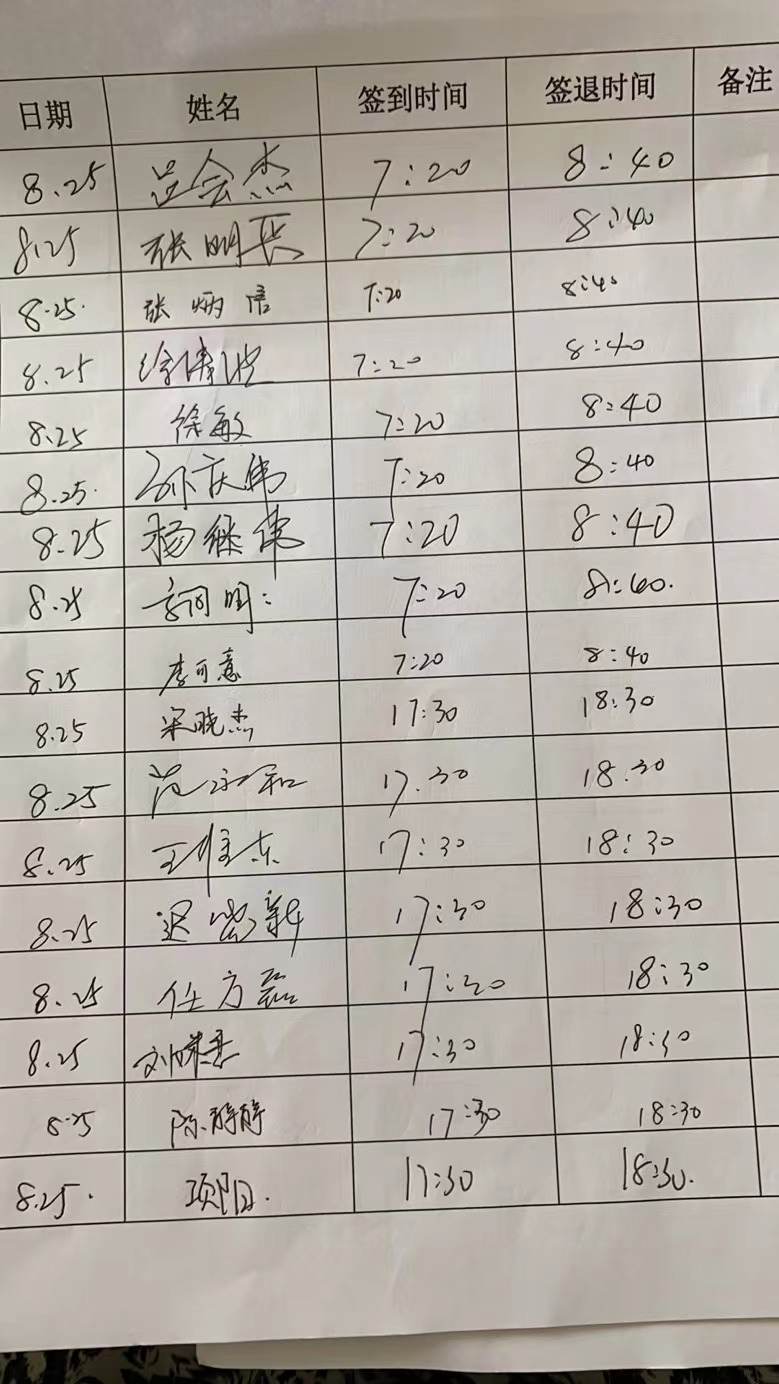 日期 姓名 签到时间 签退时间 备注
8.25 范会杰 7:20 8:40
8.25 张明兵 7:20 8:40
8.25. 张炳信 7:20 8:40
8.25 7:20 8:40
8.25 徐敏 7:20 8:40
8.25. 孙庆伟 7:20 8:40
8.25 杨继伟 7:20 8:40
8.25 7:20 8:40.
8.25 李可意 7:20 8:40
8.25 宋晓杰 17:30 18:30
8.25 范永和 17.30 18.30
8.25 王维东 17:30 18:30
8.25 迟 新 17:30 18:30
8.25 任方磊 17:30 18:30
8.25 刘 17:30 18:30
8.25 陈静静 17:30 18:30
8.25. 项阳. 17:30 18:30.